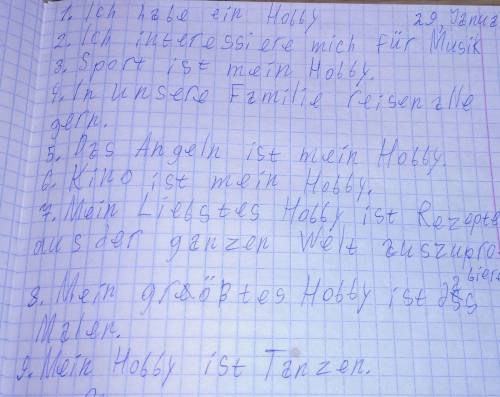 1. Ich habe ein Hobby 29. Januar
2. Ich interessiere mich für Musik
3. Sport ist mein Hobby.
4. In unsere Familie reisen alle
gern.
5. Das Angeln ist mein Hobby.
6. Kino ist mein Hobby.
7. Mein Liebstes Hobby ist Rezepte
aus der ganzen Welt auszupro-
bieren
8. Mein größtes Hobby ist das
Malen.
9. Mein Hobby ist Tanzen.